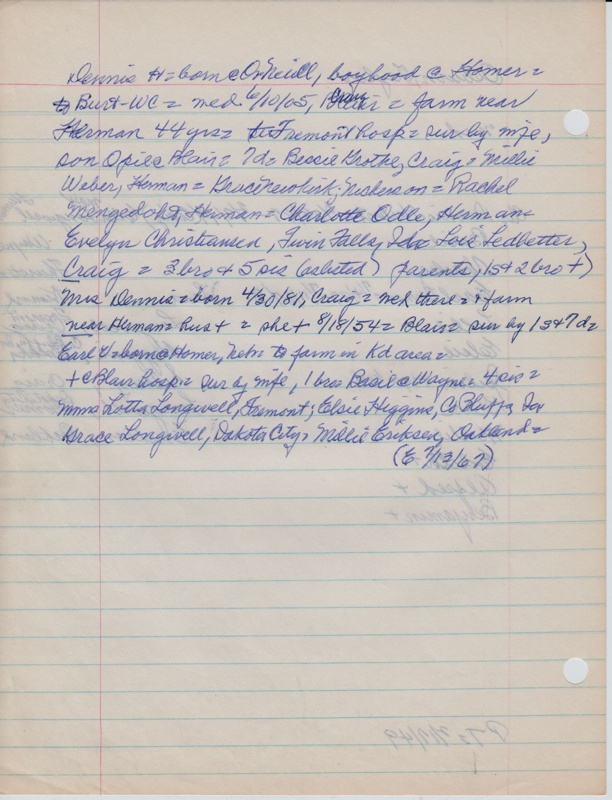 Dennis H = born @ O'Neill, boyhood @ Homer =
to Burt-WC = med 6/10/05, Craig = farm near
Herman 44 yrs = to Fremont hosp = sur by wife,
son Opie @ Blair = 7d = Bessie Grothe, Craig = Millie
Weber, Herman = Newkirk, Nickerson = Rachel
Mengedoht, Herman = Charlotte Odle, Herman =
Evelyn Christiansen, Twin Falls, Ida Lois Ledbetter,
Craig = 3 bro + 5 sis (asbsted) parents, 1s + 2 bro +)
Mrs Dennis = born 4/30/81, Craig = med there = + farm
near Herman = Rus + = she + 8/18/54 = Blair = sur by 1s + 7d =
Earl V = born @ Homer, Nebr to farm in Kd area =
+ @ Blair hosp = sur by wife, 1 bro Basil @ Wayne = 4 sis =
Mmes Lotta Longwell, Fremont; Elsie Higgins, Co Bluffs, Ia
Grace Longwell, Dakota City = Millie Eriksen, Oakland =
(E 7/13/67)